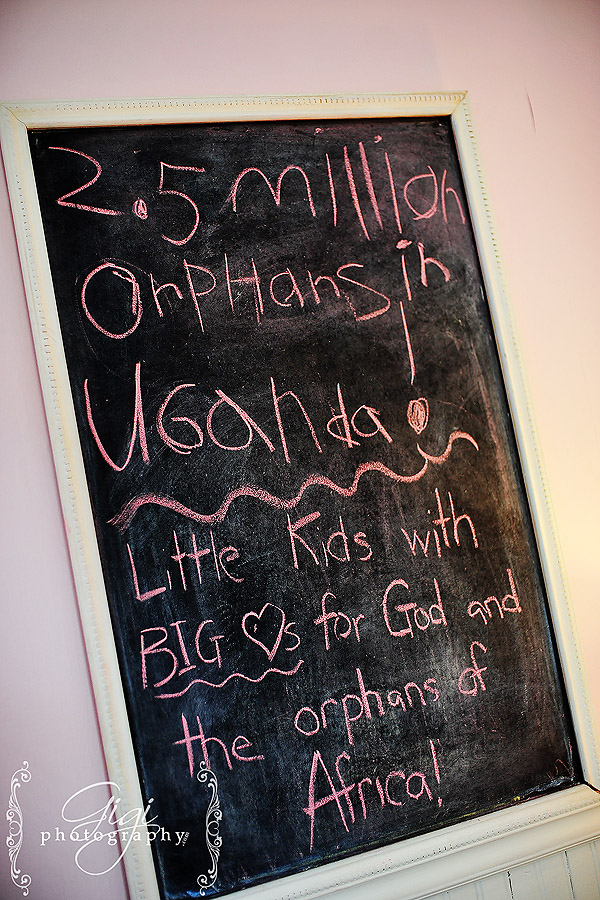 2.5 million
OrpHans in
UGanda!
Little Kids with
BIG ♥s for God and
the orphans of
Africa!
Gigi
photography.com